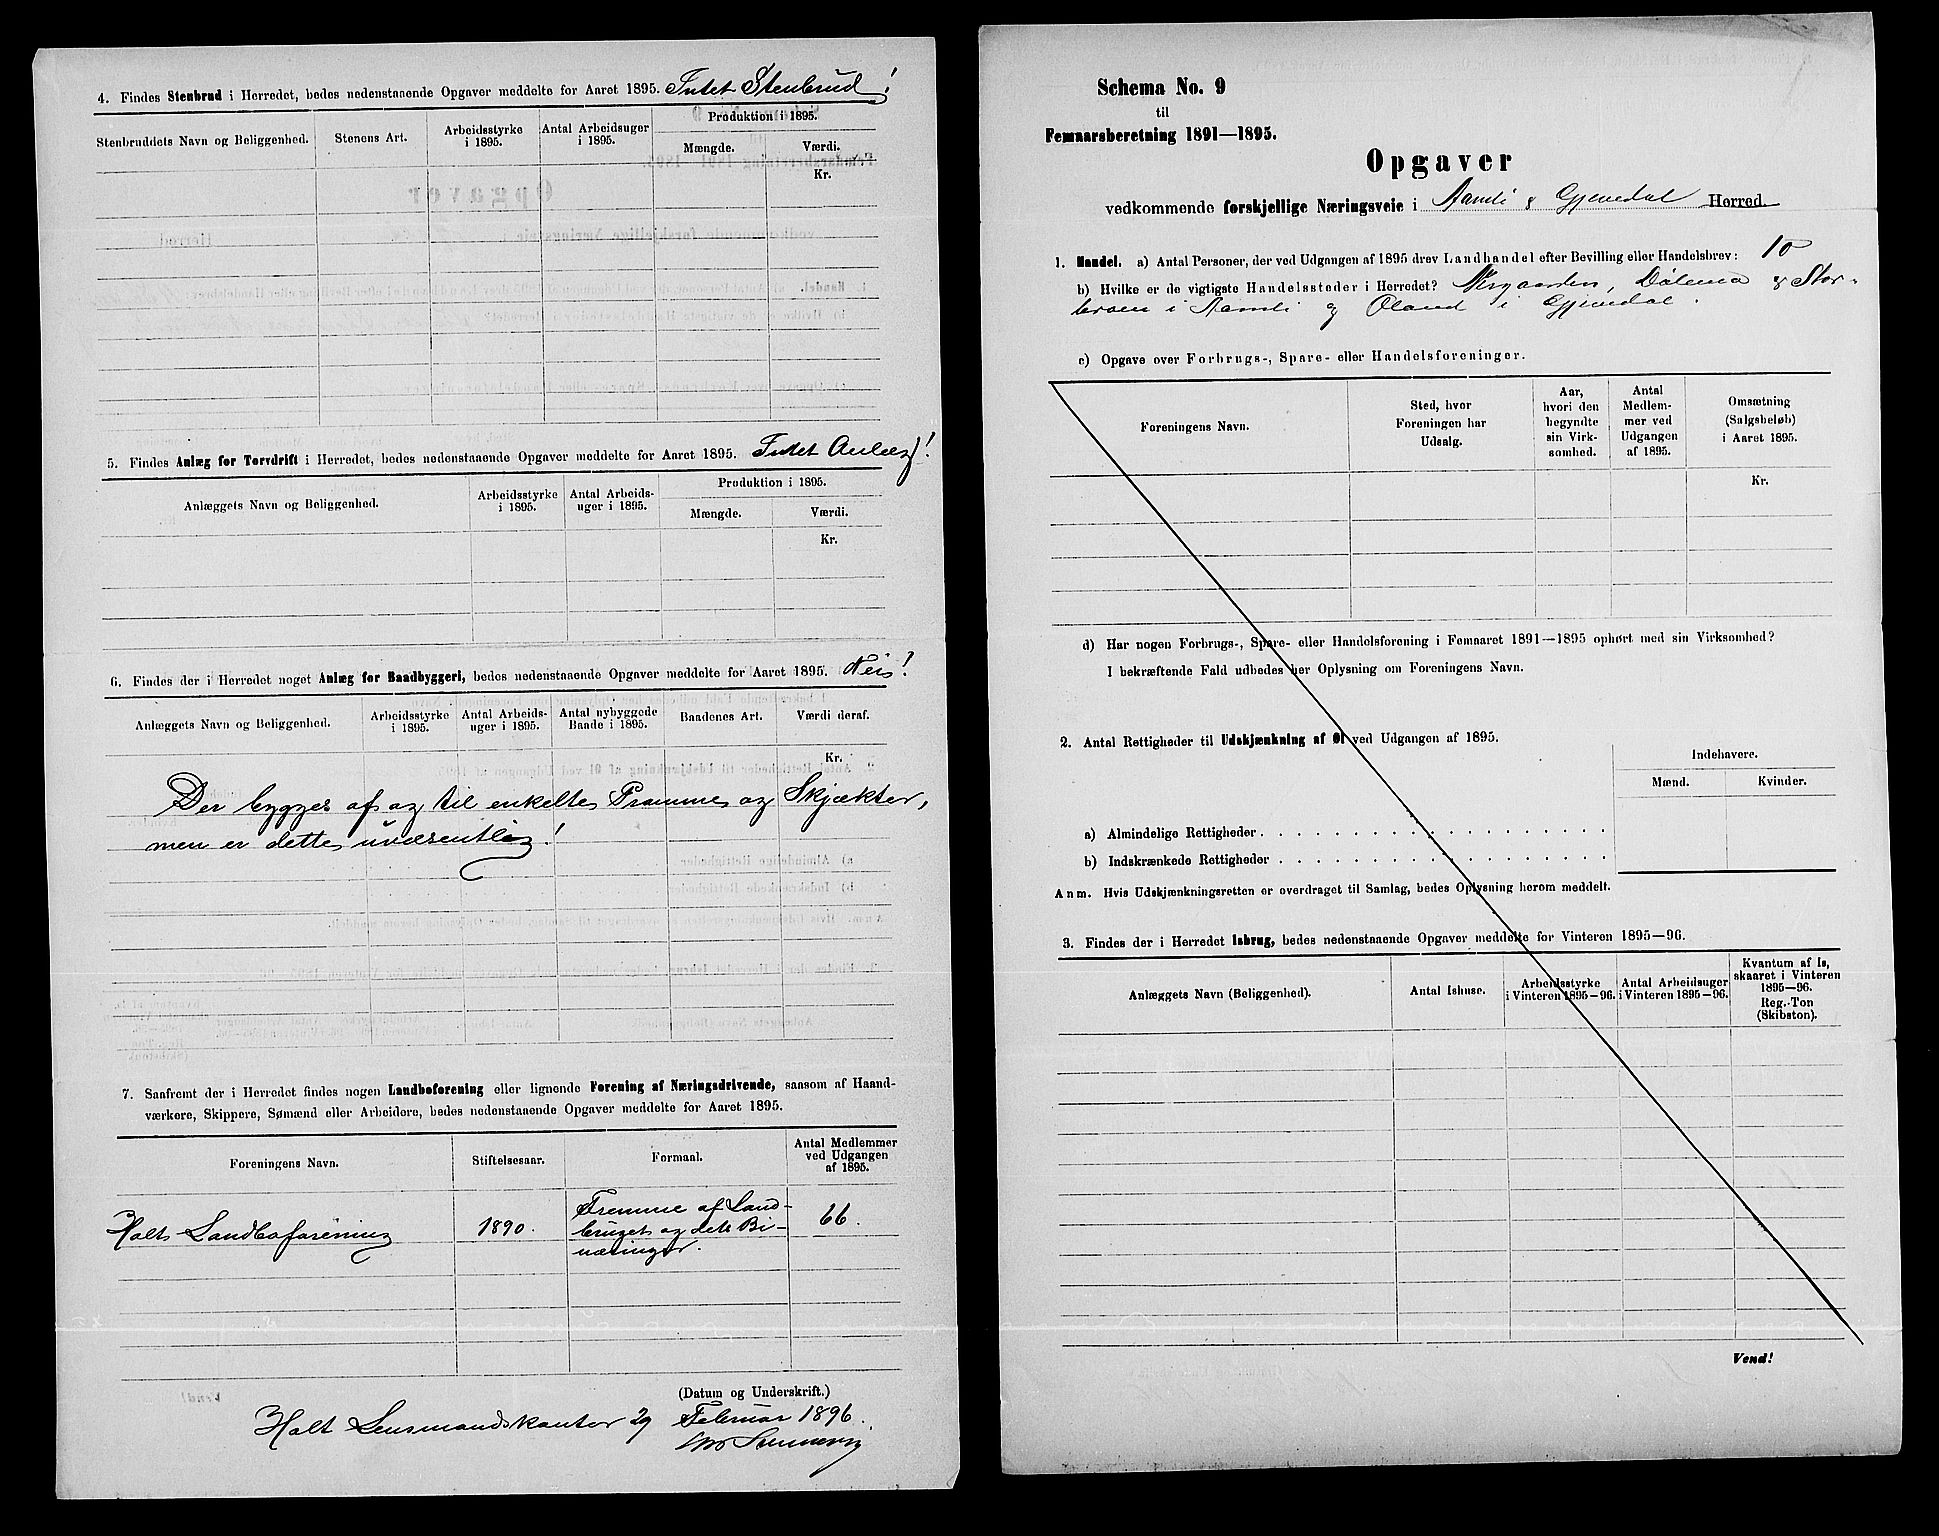 4. Findes Stenbrud i Herredet, bedes nedenstaaende Opgaver meddelte for Aaret 1895. Intet Stenbrud!
Stenbruddets Navn og Beliggenhed.
Stenens Art.
Arbeidsstyrke i 1895.
Antal Arbeidsuger i 1895.
Produktion i 1895.
Mængde.
Værdi.
Kr.
5. Findes Anlæg for Torvdrift i Herredet, bedes nedenstaaende Opgaver meddelte for Aaret 1895. Intet Anlæg!
Anlæggets Navn og Beliggenhed.
Arbeidsstyrke i 1895.
Antal Arbeids-uger i 1895.
Produktion i 1895.
Mængde.
Værdi.
Kr.
6. Findes der i Herredet noget Anlæg for Baadbyggeri, bedes nedenstaaende Opgaver meddelte for Aaret 1895. Nei!
Anlæggets Navn og Beliggenhed.
Arbeidsstyrke i 1895.
Antal Arbeids-uger i 1895.
Antal nybyggede Baade i 1895.
Baadenes Art.
Værdi deraf.
Kr.
Der bygges af og til enkelte Pramme og Skjækter,
men er dette uvæsentlig!
7. Saafremt der i Herredet findes nogen Landboforening eller lignende Forening af Næringsdrivende, saasom af Haand-
værkere, Skippere, Sømænd eller Arbeidere, bedes nedenstaaende Opgaver meddelte for Aaret 1895.
Foreningens Navn.
Stiftelsesaar.
Formaal.
Antal Medlemmer ved Udgangen af 1895.
Holts Landboforening
1890.
Fremme af Land-
bruget og dets Bi-
næringer.
66.
(Datum og Underskrift.)
Holt Lensmandskontor 29 Februar 1896.
Schema No. 9
til
Femaarsberetning 1891—1895.
Opgaver
vedkommende forskjellige Næringsveie i Aamli & Gjevedal Herred.
1. Handel. a) Antal Personer, der ved Udgangen af 1895 drev Landhandel efter Bevilling eller Handelsbrev: 10
b) Hvilke er de vigtigste Handelssteder i Herredet? Vesgaarden, Dølemo & Stor-
broen i Aamli og Øland i Gjevedal.
c) Opgave over Forbrugs-, Spare- eller Handelsforeninger.
Foreningens Navn.
Sted, hvor Foreningen har Udsalg.
Aar, hvori den begyndte sin Virk-somhed.
Antal Medlem-mer ved Udgangen af 1895.
Omsætning (Salgsbeløb) i Aaret 1895.
Kr.
d) Har nogen Forbrugs-, Spare- eller Handelsforening i Femaaret 1891—1895 ophørt med sin Virksomhed?
I bekræftende Fald udbedes her Oplysning om Foreningens Navn.
2. Antal Rettigheder til Udskjænkning af Øl ved Udgangen af 1895.
Indehavere.
Mænd.
Kvinder.
a) Almindelige Rettigheder . . . . . . . . . . . . . . . . . .
b) Indskrænkede Rettigheder . . . . . . . . . . . . . . . . .
Anm. Hvis Udskjænkningsretten er overdraget til Samlag, bedes Oplysning herom meddelt.
3. Findes der i Herredet Isbrug, bedes nedenstaaende Opgaver meddelte for Vinteren 1895—96.
Anlæggets Navn (Beliggenhed).
Antal Ishuse.
Arbeidsstyrke i Vinteren 1895—96.
Antal Arbeidsuger i Vinteren 1895—96.
Kvantum af Is, skaaret i Vinteren 1895—96.
Reg.-Ton (Skibston).
Vend!